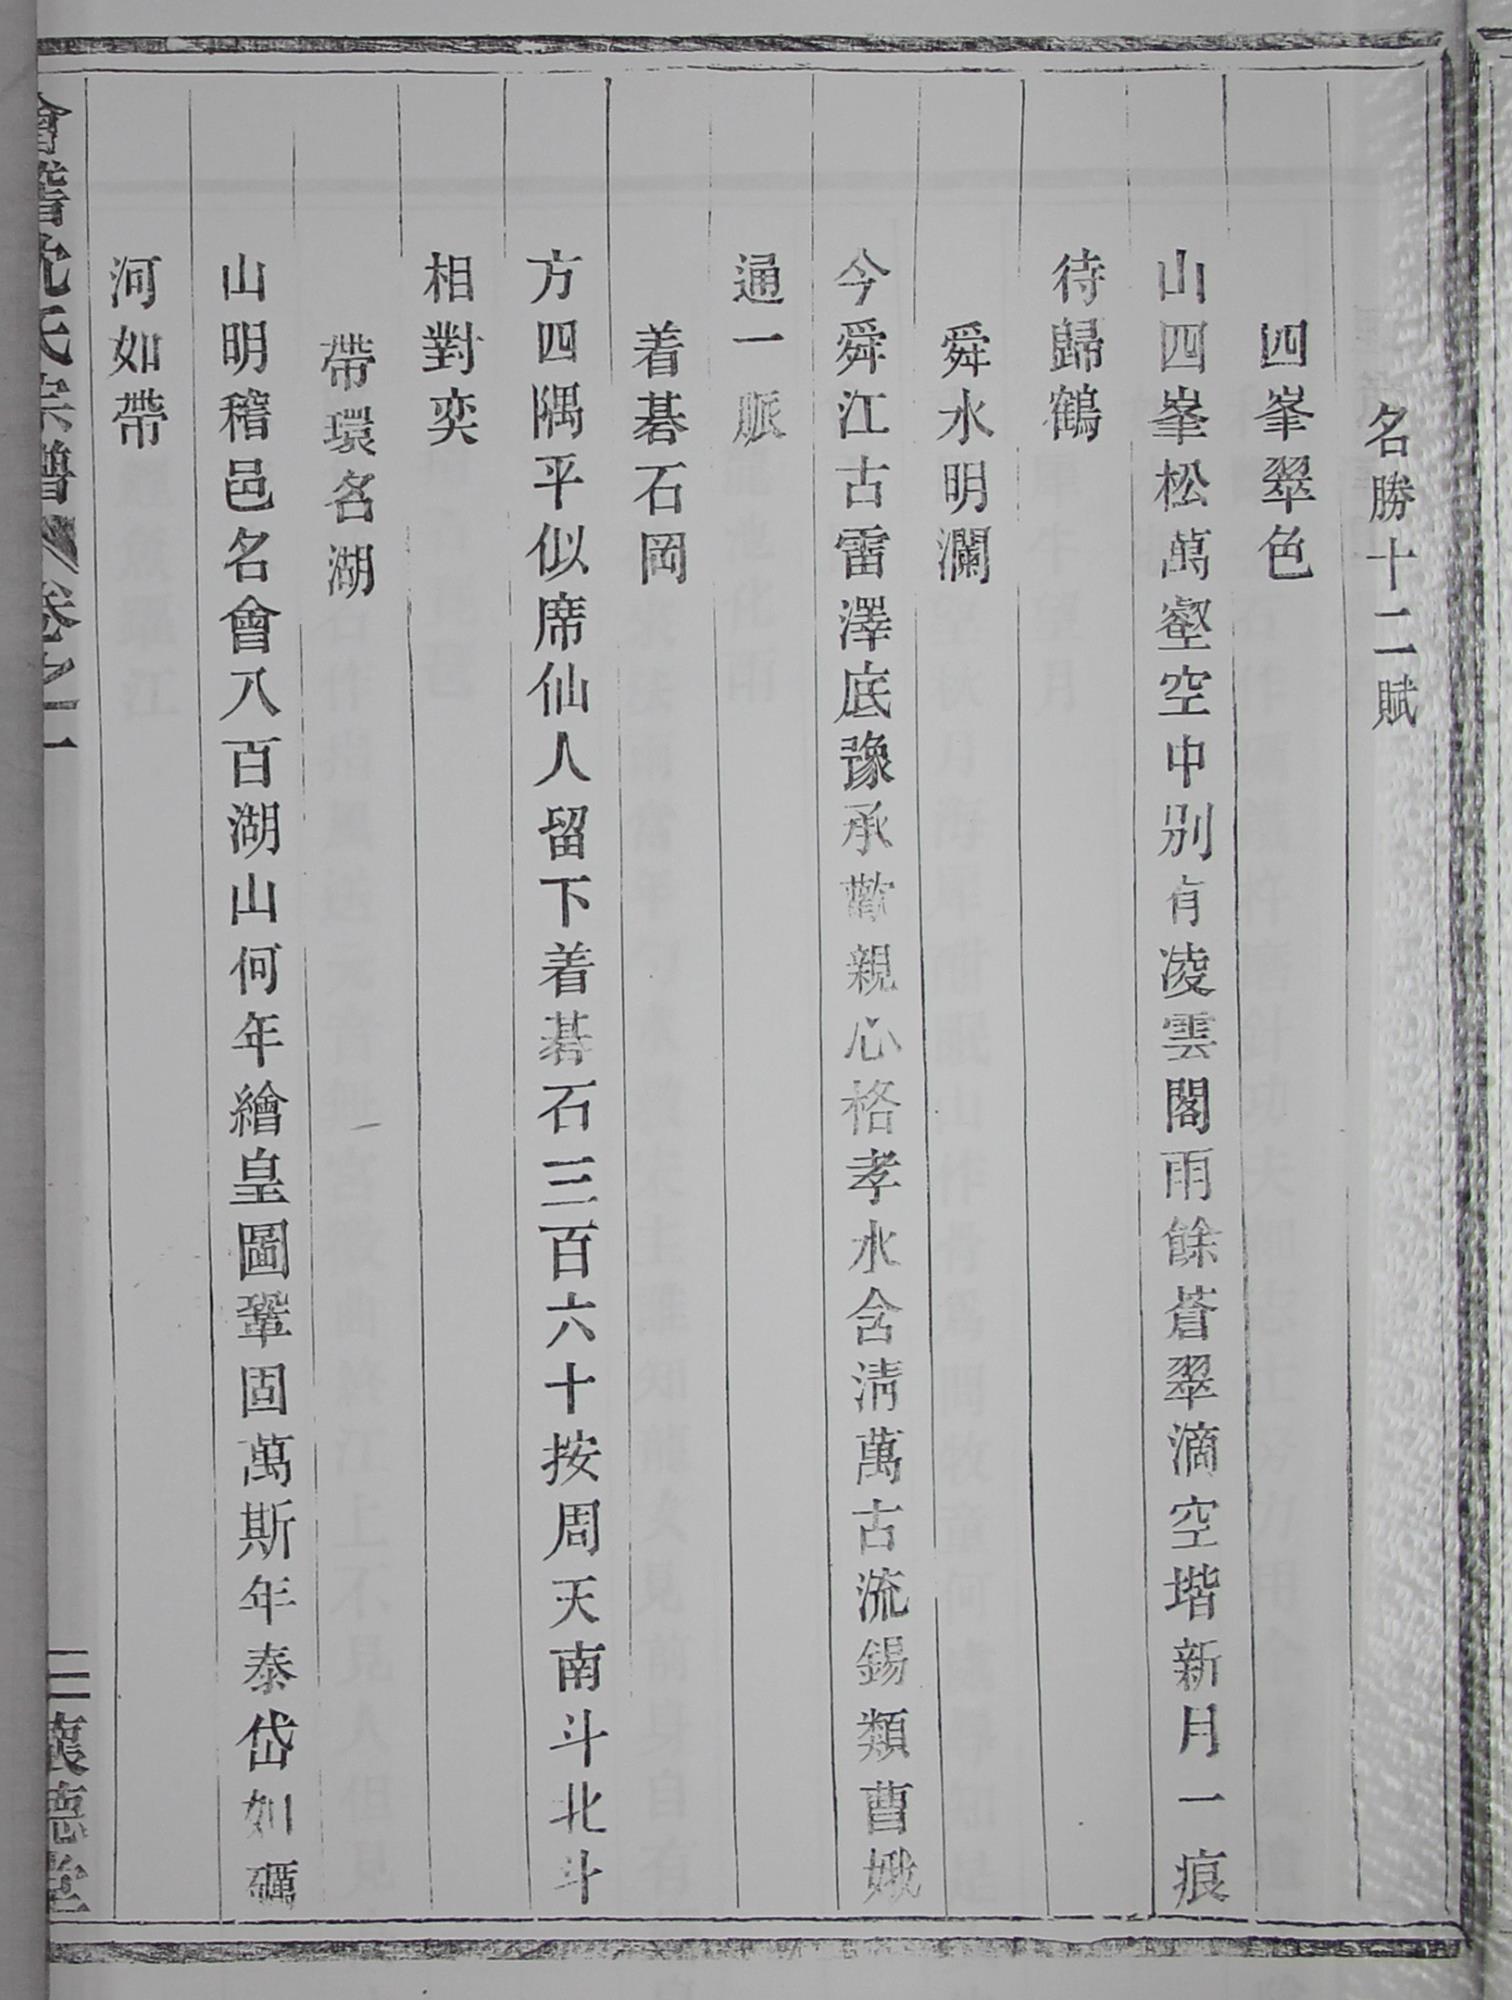 名勝十二賦
四峯翠色
山四峯松萬壑空中別有凌雲閣雨餘蒼翠滴空堦新月一痕
待歸鶴
舜水明瀾
今舜江古雷澤底豫承歡親心格孝水含淸萬古流錫類曹娥
通一脈
着碁石岡
方四隅平似席仙人留下着碁石三百六十按周天南斗北斗
相對奕
帶環名湖
山明稽邑名會八百湖山何年繪皇圖鞏固萬斯年泰岱如礪
河如帶
會稽沈氏宗譜 卷之一 三 德堂